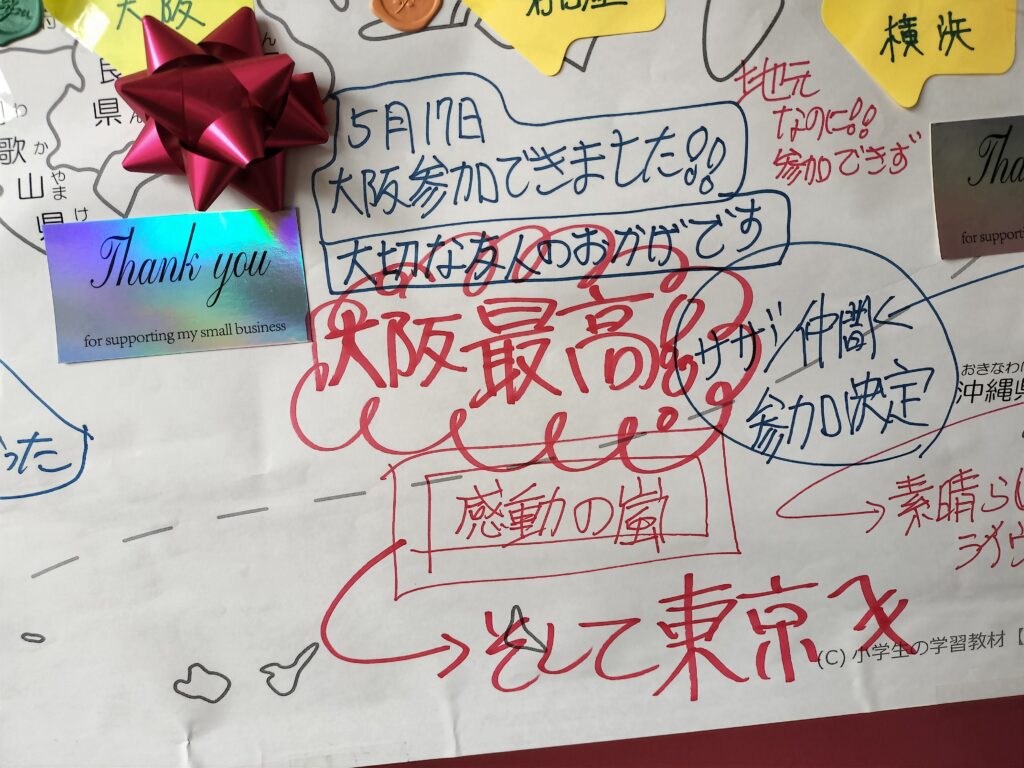 大阪
横浜
良
県
5月17日
大阪参加できました!!
大切な友人のおかげです
地元
なのに!!
参加できず
歌
か
山
やま
県
け
Thank you
for supporting my small business
Tha
for supportin
大阪最高!!
サザン仲間く
参加決定
おきなわけ
沖縄県
った
感動の嵐
素晴らし
ライヴ
そして東京へ
(C) 小学生の学習教材【